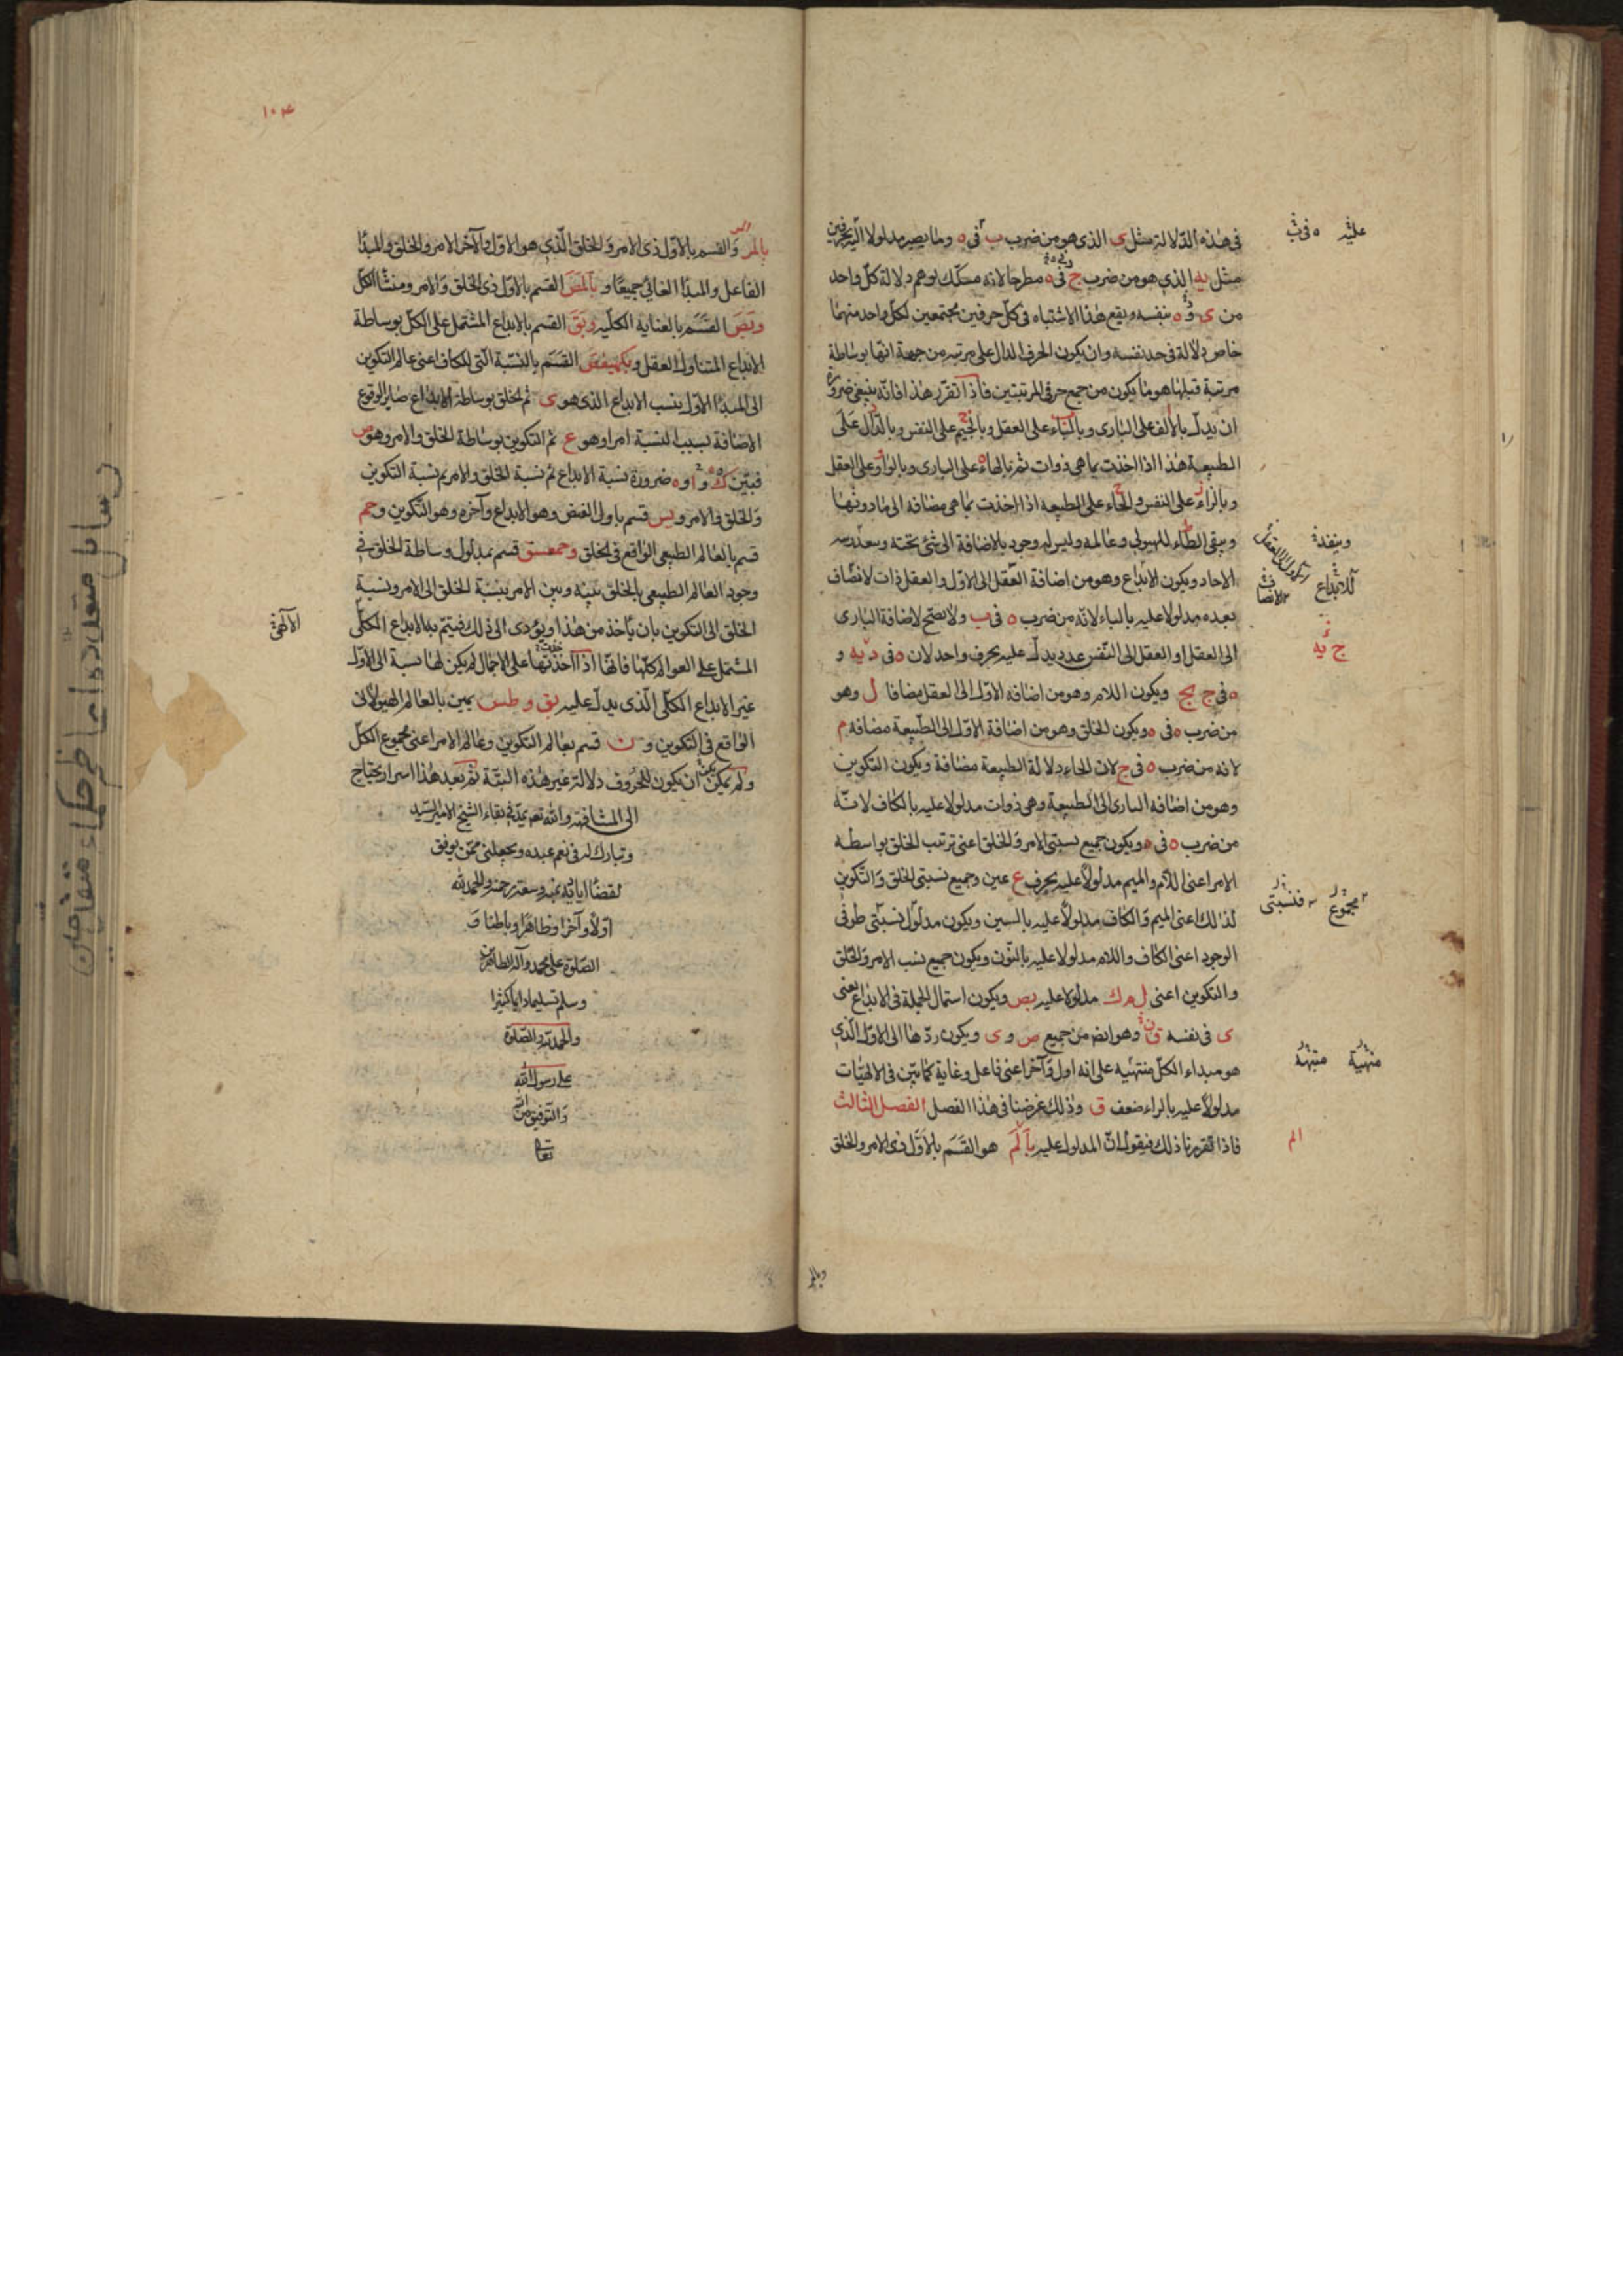 في هذه الدلالة مثل ى الذي هو من ضرب ب في ه وما يصير مدلولا اليه بحرفين
مثل يه الذي هو من ضرب ج في ه مطرحا لانه مشكك يوهم دلالة كل واحد
من ى و ه بنفسه ويقع هذا الاشتباه في كل حرفين مجتمعين لكل واحد منهما
خاص دلالة في حد نفسه وان يكون الحرف الدال على مرتبه من جهة انها بوساطة
مرتبة قبلها هو ما يكون من جمع حرفي المرتبتين فاذا تقرر هذا فانه ينبغي ضرورة
ان يدل بالالف على الباري وبالباء على العقل وبالجيم على النفس وبالدال على
الطبيعة هذا اذا اخذت بما هي ذوات ثم بالهاء على الباري وبالواو على العقل
وبالزاء على النفس والحاء على الطبيعه اذا اخذت بما هي مضافه الى ما دونها
ويبقى الطاء للهيولى وعالمه وليس له وجود بالاضافة الى شئ تحته
الاحاد ويكون الابداع وهو من اضافة العقل الى الاول والعقل ذات لا نضاف
بعده مدلولا عليه بالياء لانه من ضرب ه في ب ولا يصح لاضافة الباري
الى العقل او العقل الى النفس عدد يدل عليه بحرف واحد لان ه في د يه و
ه في ج يح ويكون اللام وهو من اضافه الاول الى العقل مضافا ل وهو
من ضرب ه في ه ويكون الخلق وهو من اضافة الاول الى الطبيعة مضافه م
لانه من ضرب ه في ح لان الحاء دلالة الطبيعة مضافة ويكون التكوين
وهو من اضافه الباري الى الطبيعة وهي ذوات مدلولا عليه بالكاف لانه
من ضرب ه في ء ويكون جميع نسبتي الامر والخلق اعني ترتيب الخلق بواسطه
الامر اعني اللام والميم مدلولا عليه بحرف ع عين وجميع نسبتي الخلق والتكوين
لذلك اعني الميم والكاف مدلولا عليه بالسين ويكون مدلول نسبتي طرفي
الوجود اعني الكاف واللام مدلولا عليه بالنون ويكون جميع نسب الامر والخلق
والتكوين اعني ل م ك مدلولا عليه بص ويكون اشتمال الجملة في الابداع يعني
ى في نفسه ق وهو ايضا من جميع ص و ى ويكون ردها الى الاول الذي
هو مبداء الكل منتهيه على انه اول وآخر اعني فاعل وغاية كما بين في الالهيات
مدلولا عليه بالراء ضعف ق وذلك غرضنا في هذا الفصل الفصل الثالث
فاذا تقرر نا ذلك فيقول ان المدلول عليه بآلم هو القسم بالاول ذي الامر والخلق
علىه ه في ب
للابداع
ج يه
مجموع فنسبتي
منهية منتهية
الم
وبالمر
١٠٤
بالمر والقسم بالاول ذي الامر والخلق الذي هو الاول والآخر الامر والخلق والمبدأ
الفاعل والمبدأ الغائي جميعا و بآلمص القسم بالاول ذي الخلق والامر ومنشأ الكل
وبص القسم بالعناية الكليه وبق القسم بالابداع المشتمل على الكل بوساطة
الابداع المتناول العقل وبكهيعص القسم بالنسبة التي للكاف اعني عالم التكوين
الى المبدأ الاول بنسب الابداع الذي هو ى ثم الخلق بوساطة الابداع صاير الوقوع
الاضافة بسبب النسبة امرا وهو ع ثم التكوين بوساطة الخلق والامر وهو ص
فبين ك و ا و ه ضرورة نسبة الابداع ثم نسبة الخلق والامر ثم نسبة التكوين
والخلق في الامر ويس قسم باول الفيض وهو الابداع وآخره وهو التكوين وحم
قسم بالعالم الطبيعي الواقع في الخلق وحمعسق قسم بمدلول وساطة الخلق في
وجود العالم الطبيعي بالخلق بينه وبين الامر بنسبة الخلق الى الامر ونسبة
الخلق الى التكوين بان يأخذ من هذا ويؤدى الى ذلك فيتم به الابداع الكلي
المشتمل على العوالم كلها فانها اذا اخذتها على الاجمال لم يكن لها نسبة الى الاول
غير الابداع الكلي الذي يدل عليه بق وطس يمين بالعالم الهيولاني
الواقع في التكوين و ن قسم بعالم التكوين وعالم الامر اعني مجموع الكل
ولم يمكن ان يكون للحروف دلالة غير هذه البتة ثم بعد هذا اسرار يحتاج
الى المشافهة والله تعالى يمد في بقاء الشيخ الامير السيد
وتبارك له في نعم عبده ويجعلني ممن يوفق
لقضاء اياديه بمنه وسعة رحمته والحمد لله
اولا وآخرا وظاهرا وباطنا و
الصلوة على محمد وآله الطاهرين
وسلم تسليما دايما كثيرا
والحمد لله والصلوة
على رسول الله
والتوفيق من الله
تعالى
رسائل متعدده از حكماء متقدمين